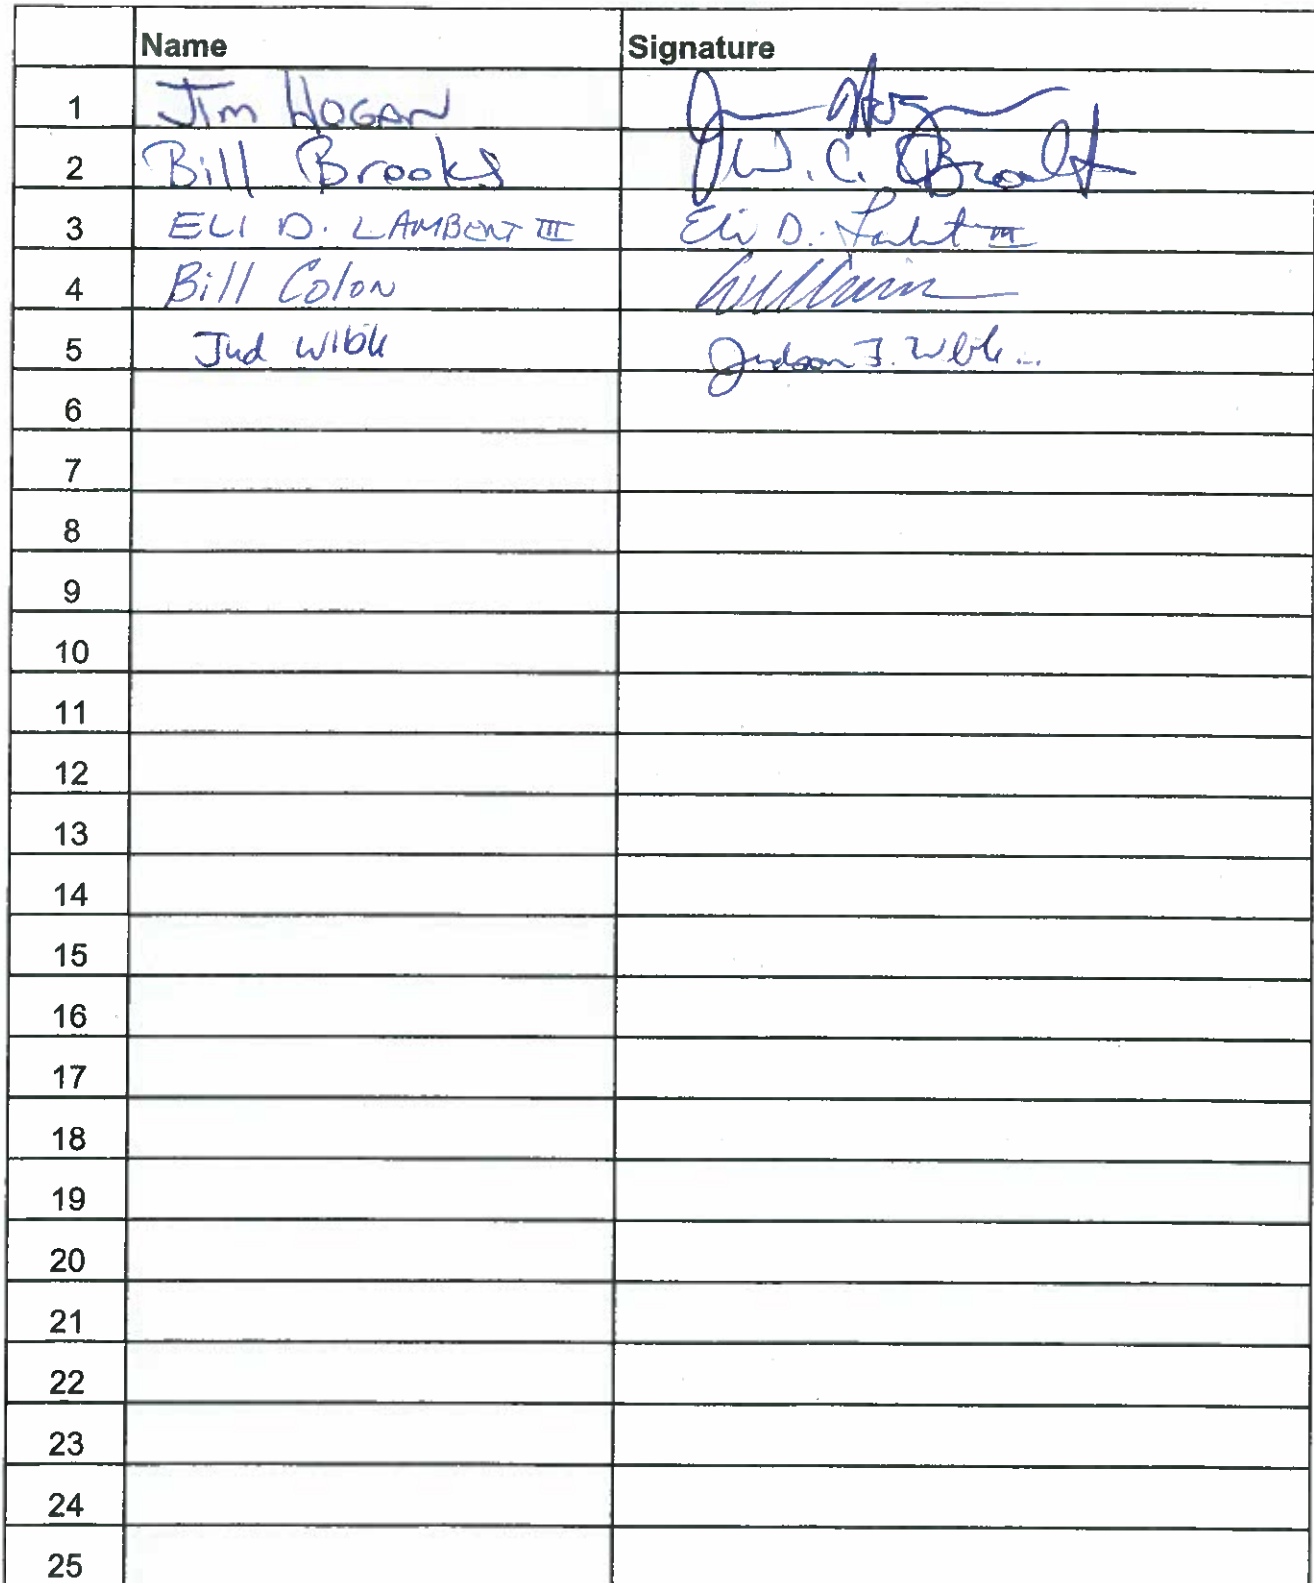 Name Signature
1 Jim HOGAN
2 Bill Brooks J.W.C. Brooks
3 ELI D. LAMBERT III Eli D. Lambert III
4 Bill Colon
5 Jud Wible Judson F. Wible
6
7
8
9
10
11
12
13
14
15
16
17
18
19
20
21
22
23
24
25